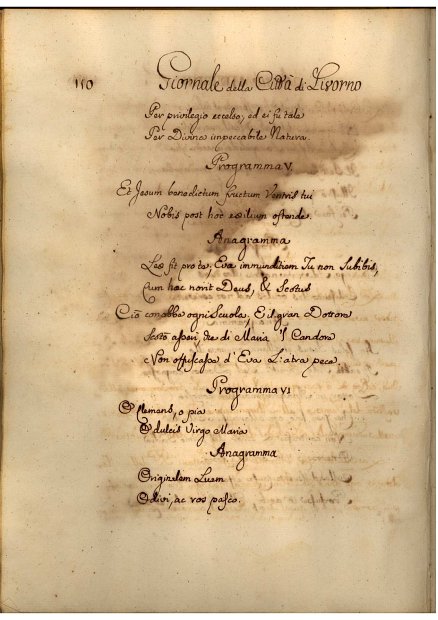 110 Giornale della Città di Livorno
Per privilegio eccelso, ed ei fù tale
Per Divina impeccabile Natura.
Programma V.
Et Jesum benedictum fructum Ventris tui
Nobis post hoc exilium ostende.
Anagramma
Lex fit pro te, Eva immunditiem Tu non Subibis,
Cum hac novit Deus, & Scotus
Ciò conobbe ogni Scuola, E il gran Dottore
Scoto che di Maria 'l Candore
Non offuscasse d'Eva L'atra pece
Programma VI
O Clemens, o pia
O dulcis Virgo Maria
Anagramma
Originalem Luem
Odivi, ac vos pasco.